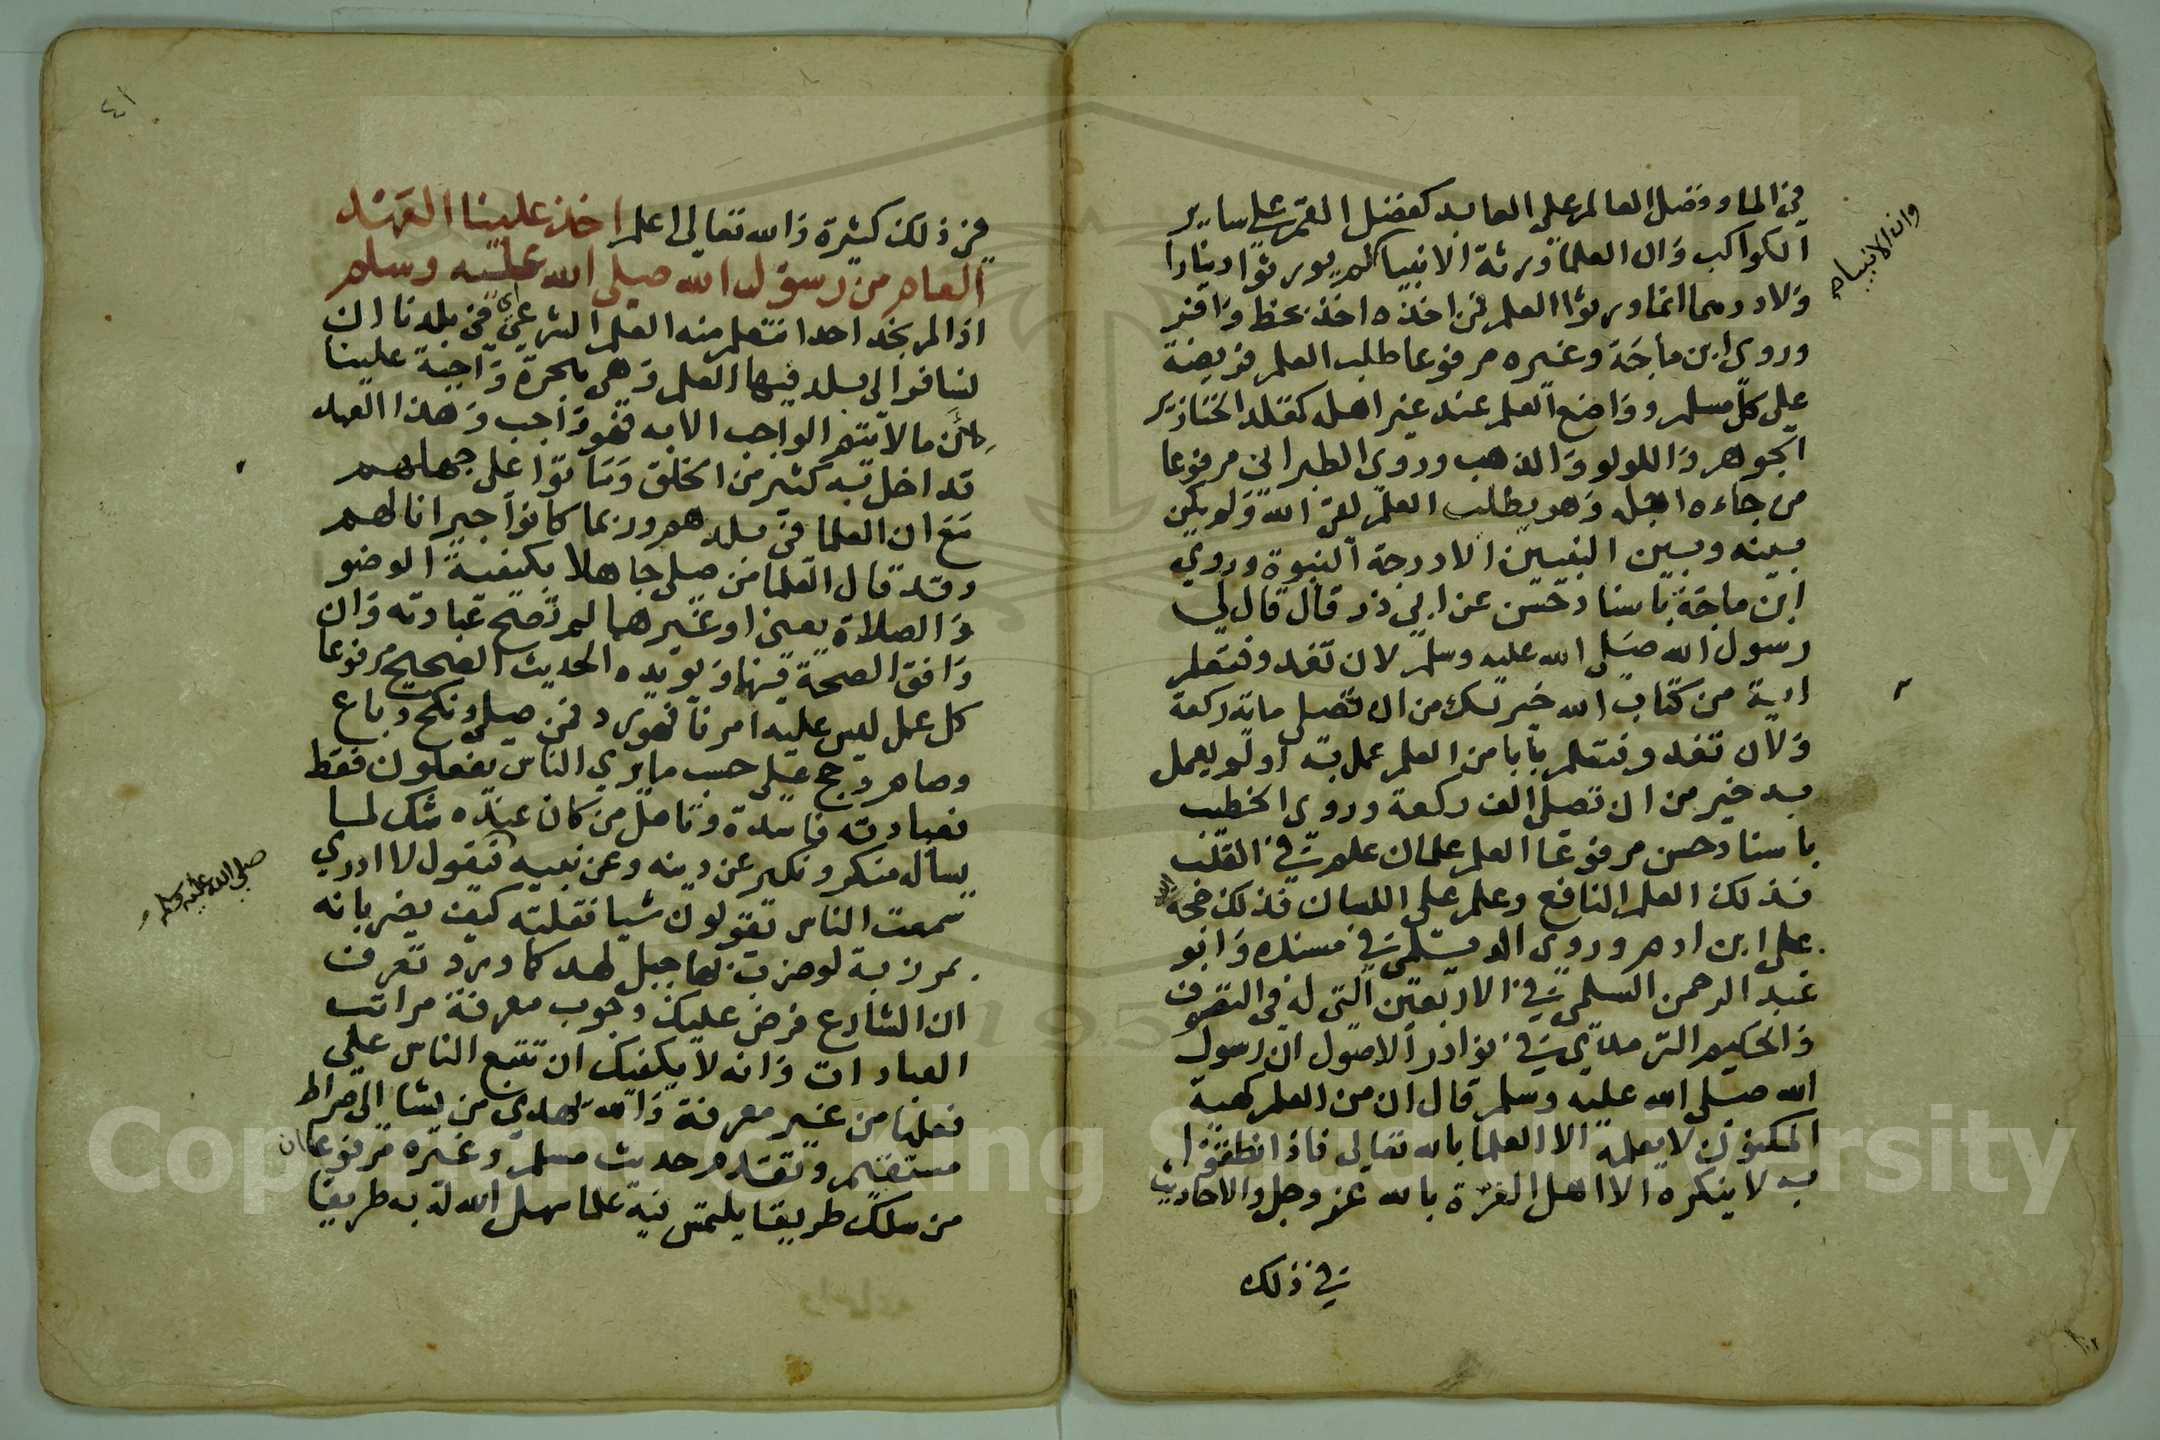 في الما وفضل العالم على العابد كفضل القمر على ساير
الكواكب وان العلما ورثة الانبيا لم يورثوا دينارا
وان الانبياء
ولا درهما انما ورثوا العلم فمن اخذه اخذ بحظ وافر
وروى ابن ماجة وغيره مرفوعا طلب العلم فريضة
على كل مسلم وواضع العلم عند غير اهله كمقلد الخنازير
الجوهر واللولو والذهب وروى الطبراني مرفوعا
من جاءه اجله وهو يطلب العلم لقى الله ولم يكن
بينه وبين النبيين الا درجة النبوة وروى
ابن ماجة باسناد حسن عن ابي ذر قال قال لي
رسول الله صلى الله عليه وسلم لان تغدو فتعلم
اية من كتاب الله خير لك من ان تصلي ماية ركعة
ولان تغدو فتعلم بابا من العلم عمل به او لم يعمل
به خير من ان تصلى الف ركعة وروى الخطيب
باسناد حسن مرفوعا العلم علمان علم في القلب
فذلك العلم النافع وعلم على اللسان فذلك حجة الله
على ابن ادم وروى الديلمي في مسنده وابو
عبد الرحمن السلمي في الاربعين التي له في التصوف
والحكيم الترمذي في نوادر الاصول ان رسول
الله صلى الله عليه وسلم قال ان من العلم كهية
المكنون لا يعلمه الا العلما بالله تعالى فاذا نطقوا
به لا ينكره الا اهل الغرة بالله عز وجل والاحاديث
في ذلك
٤١
في ذلك كثيرة والله تعالى اعلم اخذ علينا العهد
العام من رسول الله صلى الله عليه وسلم
اذا لم نجد احدا نتعلم منه العلم الشرعي في بلدنا ان
نسافر الى بلد فيها العلم وهي هجرة واجبة علينا
لان ما لا يتم الواجب الا به فهو واجب وهذا العهد
قد اخل به كثير من الخلق وماتوا على جهلهم
مع ان العلما في بلدهم وربما كانوا جيرانا لهم
وقد قال العلما من صلى جاهلا بكيفية الوضو
والصلاة يعني او غيرهما لم تصح عبادته وان
وافق الصحة فيها ويويده الحديث الصحيح مرفوعا
كل عمل ليس عليه امرنا فهو رد فمن صلى ونكح وباع
وصام وحج على حسب ما يرى الناس يفعلون فقط
فعبادته فاسدة وتامل من كان عنده شك لما
يسأله منكر ونكير عن دينه وعن نبيه فيقول لا ادري
صلى الله عليه وسلم
سمعت الناس يقولون شيا فقلته كيف يضربانه
بمرزبة لو ضرب بها جبل لهد كما ورد تعرف
ان الشارع فرض عليك وجوب معرفة مراتب
العبادات وانه لا يكفيك ان تتبع الناس على
فعلها من غير معرفة والله يهدي من يشا الى صراط
مستقيم وتقدم حديث مسلم وغيره مرفوعا ان
من سلك طريقا يلتمس فيه علما سهل الله له به طريقا
Copyright © King Saud University
1957